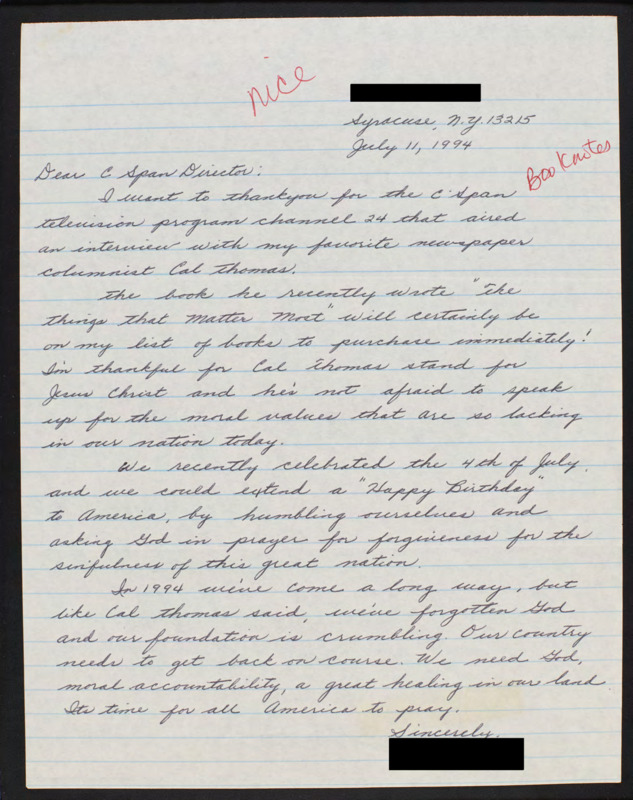 nice
Syracuse, N.Y. 13215
July 11, 1994
Booknotes
Dear C Span Director:
I want to thankyou for the C-Span
television program channel 24 that aired
an interview with my favorite newspaper
columnist Cal Thomas.
The book he recently wrote "The
things that Matter Most" will certainly be
on my list of books to purchase immediately!
I'm thankful for Cal Thomas stand for
Jesus Christ and he's not afraid to speak
up for the moral values that are so lacking
in our nation today.
We recently celebrated the 4th of July,
and we could extend a "Happy Birthday"
to America, by humbling ourselves and
asking God in prayer for forgiveness for the
sinfulness of this great nation.
In 1994 we've come a long way, but
like Cal Thomas said, we've forgotten God
and our foundation is crumbling. Our country
needs to get back on course. We need God,
moral accountability, a great healing in our land
Its time for all America to pray.
Sincerely,